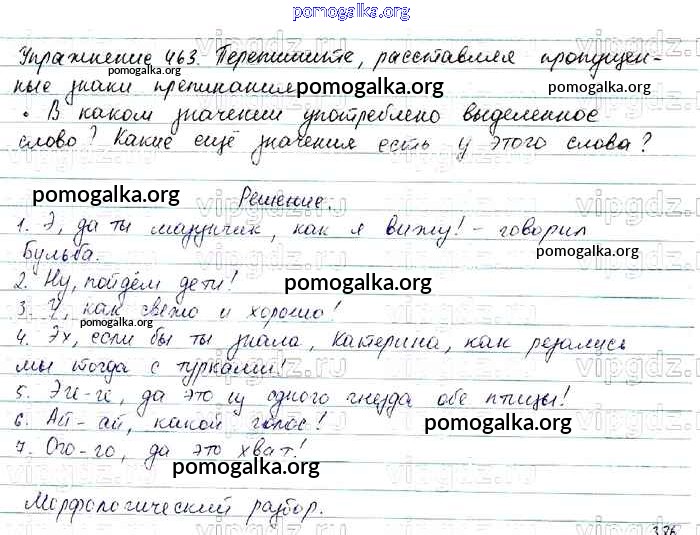 pomogalka.org
Упражнение 463. Перепишите, расставляя пропущен-
pomogalka.org
ные знаки препинания.
pomogalka.org
• В каком значении употреблено выделенное
слово? Какие ещё значения есть у этого слова?
pomogalka.org
Решение.
vipgdz.ru
1. Э, да ты мазунчик, как я вижу! - говорил
Бульба.
pomogalka.org
2. Ну, пойдём дети!
pomogalka.org
3. У, как свежо и хорошо!
pomogalka.org
4. Эх, если бы ты знала, Катерина, как резались
мы тогда с турками!
5. Эге-ге, да это из одного гнезда обе птицы!
6. Ай-ай, какой голос!
pomogalka.org
7. Ого-го, да это хват!
pomogalka.org
Морфологический разбор.
pomogalka.org